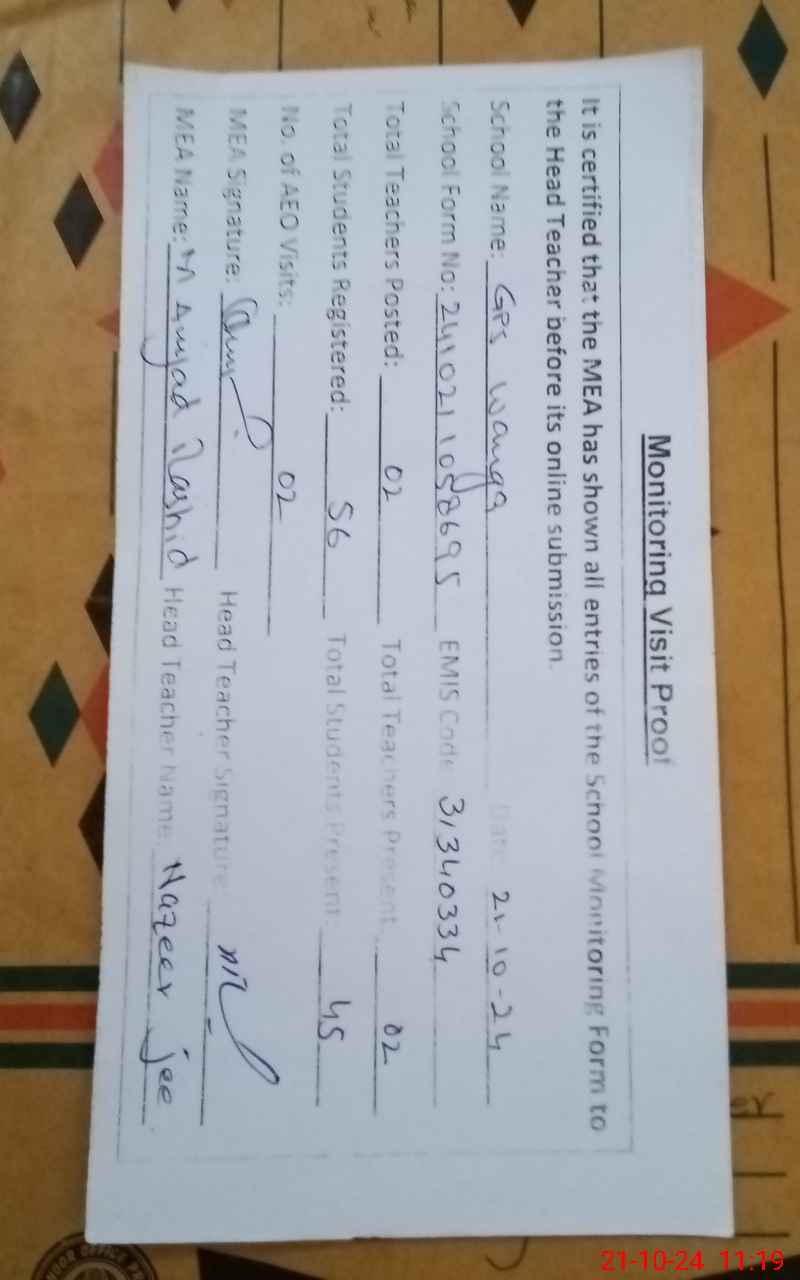 Monitoring Visit Proof
It is certified that the MEA has shown all entries of the School Monitoring Form to
the Head Teacher before its online submission.
School Name: GPS Wanga Date: 21-10-24
School Form No: 2410211058695 EMIS Code: 31340334
Total Teachers Posted: 02 Total Teachers Present: 02
Total Students Registered: 56 Total Students Present: 45
No. of AEO Visits: 02
MEA Signature: Head Teacher Signature:
MEA Name: M Amjad Rashid Head Teacher Name: Nazeer Jee
er
OFFICE PR
21-10-24 11:19